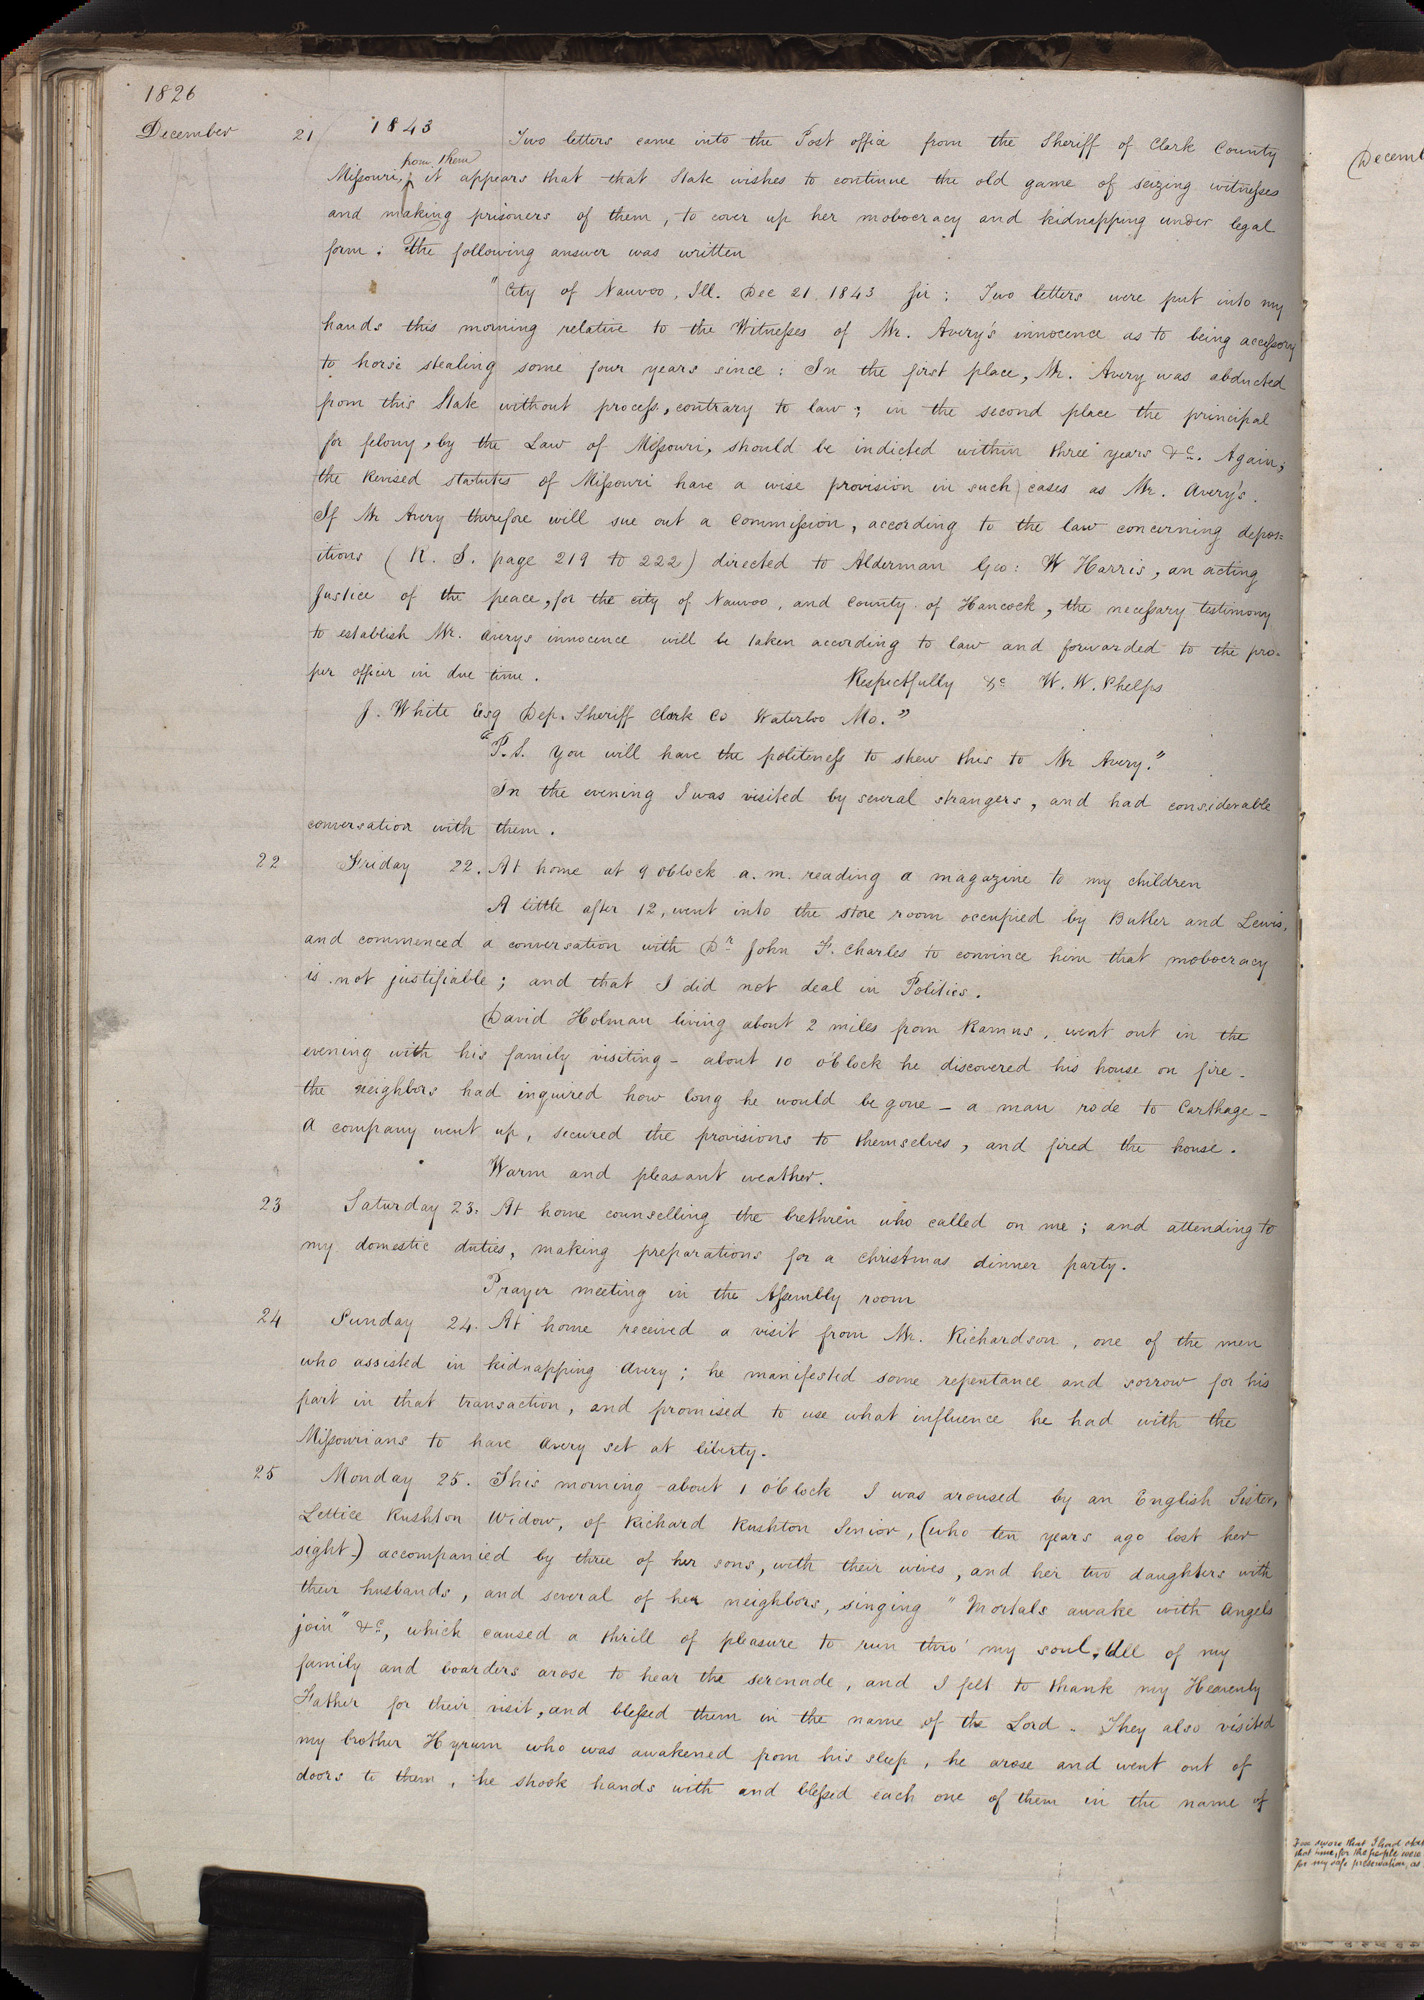 1826
December 21 1843 Two letters came into the Post office from the Sheriff of Clark County
from them
Missouri, it appears that that State wishes to continue the old game of seizing witnesses
and making prisoners of them, to cover up her mobocracy and kidnapping under legal
form: The following answer was written
"City of Nauvoo, Ill. Dec 21. 1843 Sir; Two letters were put into my
hands this morning relative to the Witnesses of Mr. Avery's innocence as to being accessory
to horse stealing some four years since: In the first place, Mr. Avery was abducted
from this State without process, contrary to law; in the second place the principal
for felony, by the Law of Missouri, should be indicted within three years &c. Again,
the Revised statutes of Missouri have a wise provision in such cases as Mr. Avery's.
If Mr Avery therefore will sue out a Commission, according to the law concerning depos=
itions (R. S. page 219 to 222) directed to Alderman Geo: W Harris, an acting
Justice of the peace, for the city of Nauvoo, and County of Hancock, the necessary testimony
to establish Mr. Averys innocence will be taken according to law and forwarded to the pro=
per officer in due time. Respectfully &c W. W. Phelps
J. White Esq Dep. Sheriff Clark Co Waterloo Mo."
"P.S. you will have the politeness to shew this to Mr Avery."
In the evening I was visited by several strangers, and had considerable
conversation with them.
22 Friday 22. At home at 9 o'clock a.m. reading a magazine to my children
A little after 12, went into the store room occupied by Butler and Lewis,
and commenced a conversation with Dr John F. Charles to convince him that mobocracy
is not justifiable; and that I did not deal in Politics.
David Holman living about 2 miles from Ramus, went out in the
evening with his family visiting - about 10 o'clock he discovered his house on fire -
the neighbors had inquired how long he would be gone - a man rode to Carthage -
A company went up, secured the provisions to themselves, and fired the house.
Warm and pleasant weather.
23 Saturday 23. At home counselling the brethren who called on me; and attending to
my domestic duties, making preparations for a christmas dinner party.
Prayer meeting in the Assembly room
24 Sunday 24. At home received a visit from Mr. Richardson, one of the men
who assisted in kidnapping Avery; he manifested some repentance and sorrow for his
part in that transaction, and promised to use what influence he had with the
Missourians to have Avery set at liberty.
25 Monday 25. This morning about 1 o'clock I was aroused by an English Sister,
Lettice Rushton Widow, of Richard Rushton Senior, (who ten years ago lost her
sight) accompanied by three of her sons, with their wives, and her two daughters with
their husbands, and several of her neighbors, singing "Mortals awake with Angels
join" &c, which caused a thrill of pleasure to run thro' my soul. All of my
family and boarders arose to hear the serenade, and I felt to thank my Heavenly
Father for their visit, and blessed them in the name of the Lord. They also visited
my brother Hyrum who was awakened from his sleep, he arose and went out of
doors to them, he shook hands with and blessed each one of them in the name of
Decem
swore that I had
that time, for the people were
for my safe preservation, as